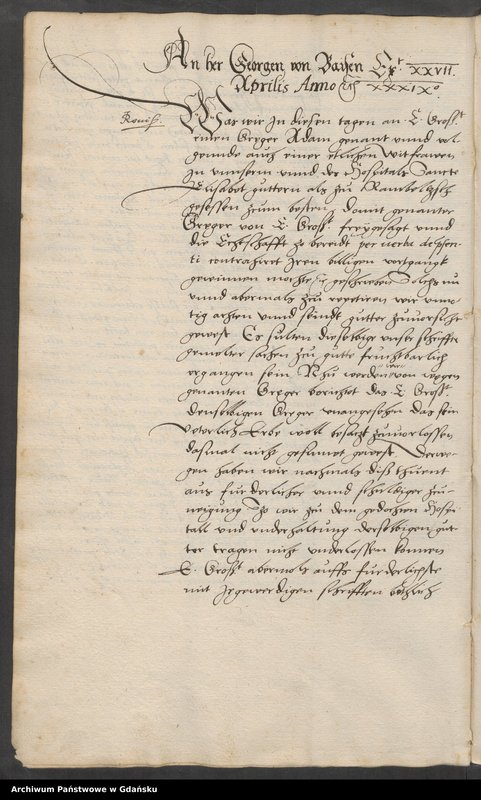 An her Georgen von Baysen xxvii.
Aprilis Anno xxxixº
Was wir In diesen tagen an E Großt.
einen Greger Adam genant vnnd vol
freunde auch einer etlichen Witfrawen
In vnnserm vnnd des Hospitals Sancte
Elisabet guttern als zu
gesessen zum besten, damit genanter
Greger von E. Großt. freygesagt vnnd
die Echtschafft so bereidt per verba desponsa-
ti contrahirt Iren billigen vortgangk
gewinnen mochte, geschrieben Solchs nu
vnnd abermals zu repetiren wir vnno-
tig achten vnnd seindt gutter zuuorsicht
gewest Es sulten dieselbige vnser schriffte
gemelter sachen zu gutte fruchtbarlich
ergangen sein Nhu werden wir von wegen
genanten Greger berichtet das E Großt.
denselbigen Greger vnangesehen das sein
veterlich Erbe woll besatzt zuuorlossen
dasmal nicht gesinnet gewest Derwe-
gen haben wir nachmals diß thuent
aus furderlicher vnnd schuldiger zu-
neigung So wir zu dem gedochten Hospi-
tall vnd vnderhaltung derselbigen gut-
ter tragen nicht vnderlossen konnen
E. Großt. abermols auffs furderlichste
mit Irgewerdigen schrifften bittlich
Archiwum Państwowe w Gdańsku